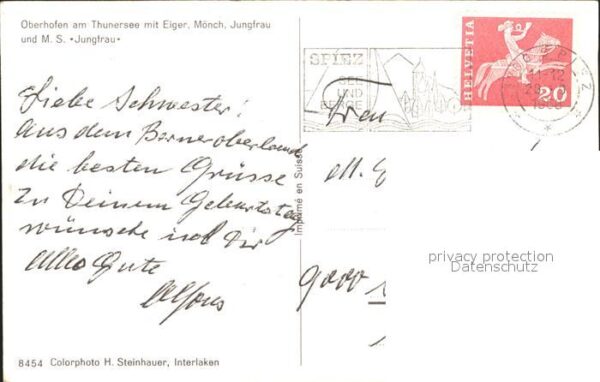 Oberhofen am Thunersee mit Eiger, Mönch, Jungfrau
und M. S. «Jungfrau»
Liebe Schwester!
Aus dem Berneroberland
die besten Grüsse
Zu Deinem Geburtstag
wünsche ich Dir
Alles Gute
Alfons
8454 Colorphoto H. Steinhauer, Interlaken
Imprimé en Suisse
SPIEZ
SEE
UND
BERGE
HELVETIA
20
SPIEZ
11-12
Frau
M. E
9000
privacy protection
Datenschutz